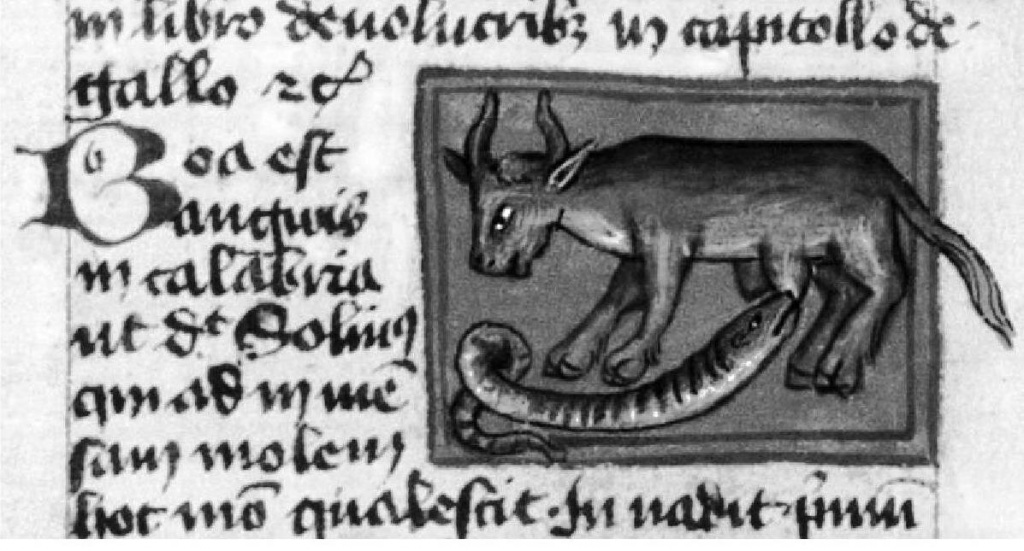 in libro de uolucribꝫ in capitollo de
gallo ⁊cͭ
Boa est
anguis
in calabria
ut dͭ Solinꝯ
qui ad in mē
sam molem
hoc mō qualescit. In uadit primū